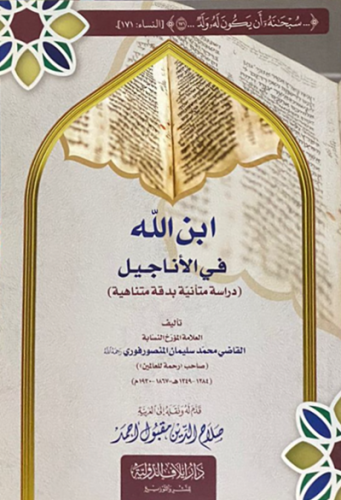 ﴿... سُبْحَٰنَهُۥٓ أَن يَكُونَ لَهُۥ وَلَدٌ ...﴾ [النساء: ١٧١].
ابن الله
في الأناجيل
(دراسة متأنية بدقة متناهية)
تأليف
العلامة المؤرخ النسابة
القاضي محمد سليمان المنصورفوري رحمه الله
(صاحب «رحمة للعالمين»)
(١٢٨٤-١٣٤٩هـ-١٨٦٧-١٩٣٠م)
قدم له ونقله إلى العربية
صلاح الدين مقبول أحمد
دار إيلاف الدولية
للنشر والتوزيع